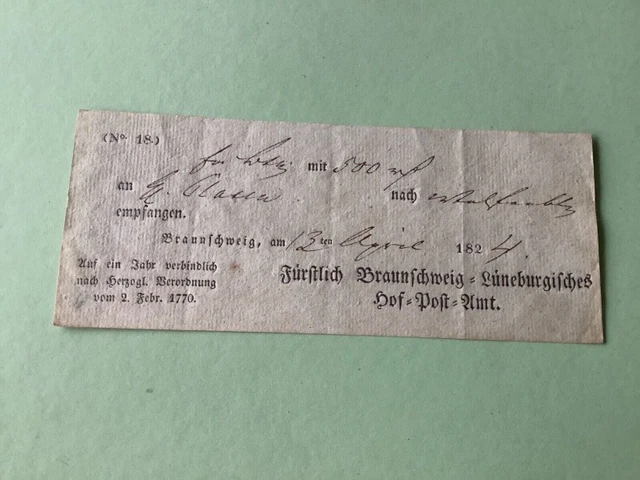 (No. 18.)
mit 500 rf
an nach
empfangen.
Braunschweig, am 12ten April 1824.
Auf ein Jahr verbindlich
nach Herzogl. Verordnung
vom 2. Febr. 1770.
Fürstlich Braunschweig-Lüneburgisches
Hof-Post-Amt.